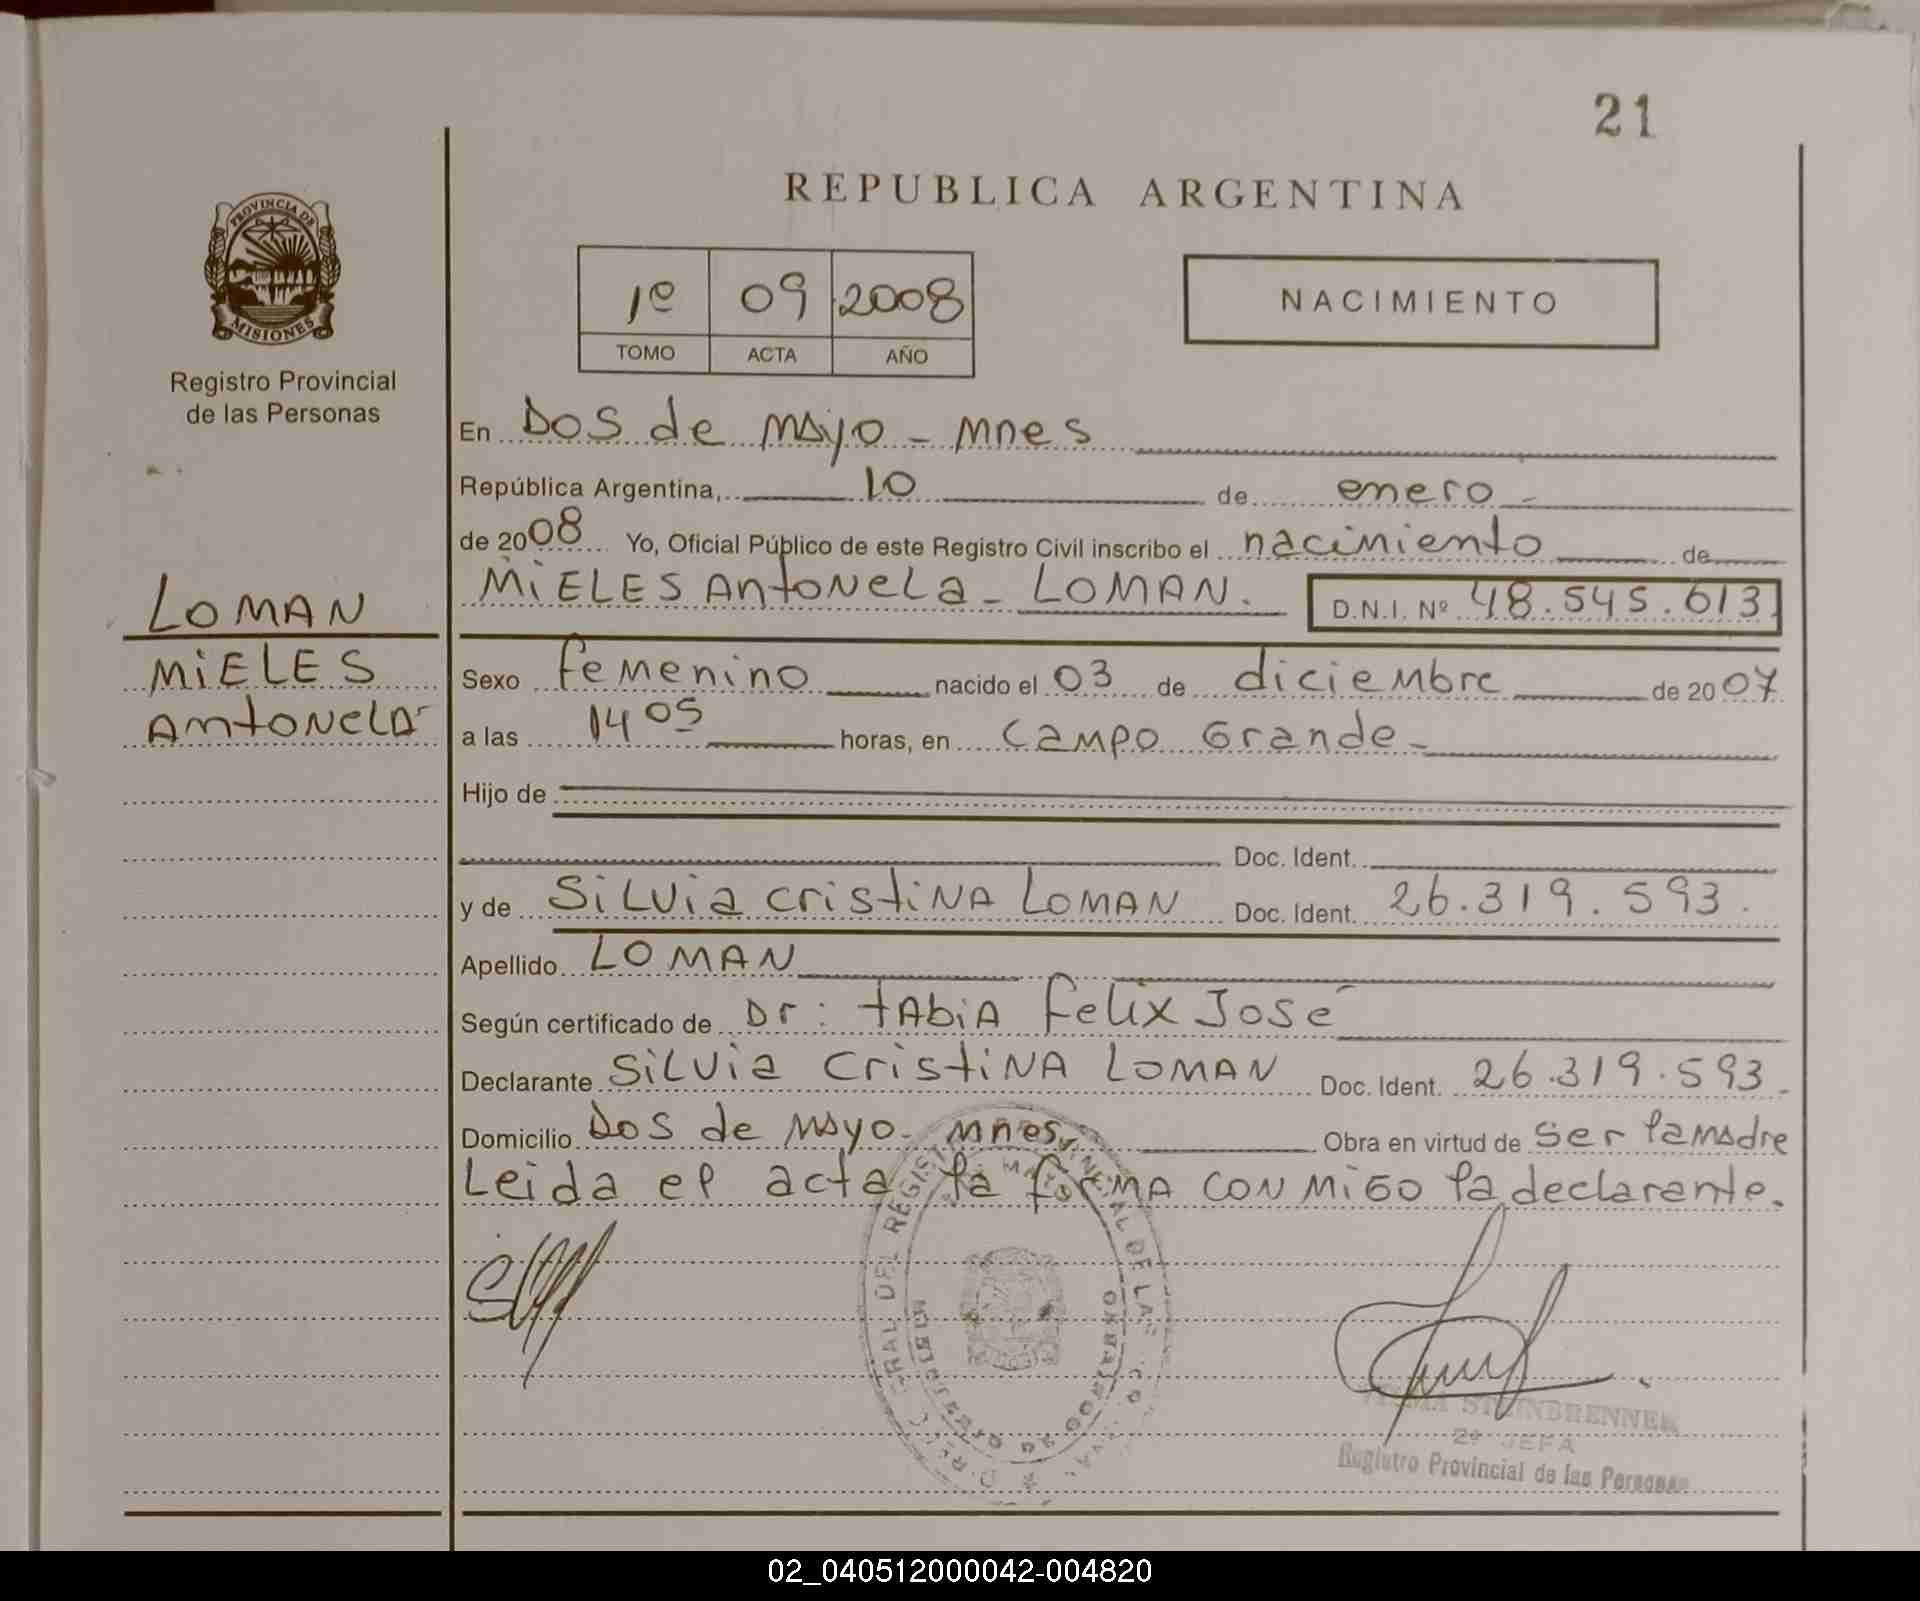 21
REPUBLICA ARGENTINA
PROVINCIA DE
MISIONES
Registro Provincial
de las Personas
1º 09 2008
TOMO ACTA AÑO
NACIMIENTO
En Dos de mayo - Mnes
República Argentina, 10 de enero -
de 2008 Yo, Oficial Público de este Registro Civil inscribo el nacimiento de
MiELES AntoNeLa - LOMAN. D.N.I. Nº 48.545.613.
LOMAN
MiELES
AntoNeLa
Sexo femenino nacido el 03 de diciembre de 2007
a las 14 05 horas, en Campo Grande -
Hijo de
Doc. Ident.
y de SiLvia CristiNA LOMAN Doc. Ident. 26.319.593.
Apellido LOMAN
Según certificado de Dr: tAbiA Felix José
Declarante SiLvia CristiNA LOMAN Doc. Ident. 26.319.593.
Domicilio Dos de Mayo - Mnes, Obra en virtud de ser la madre
Leida el acta la firma CONMiGO la declarante.
STEINBRENNER
2º JEFA
Registro Provincial de las Personas
02_040512000042-004820